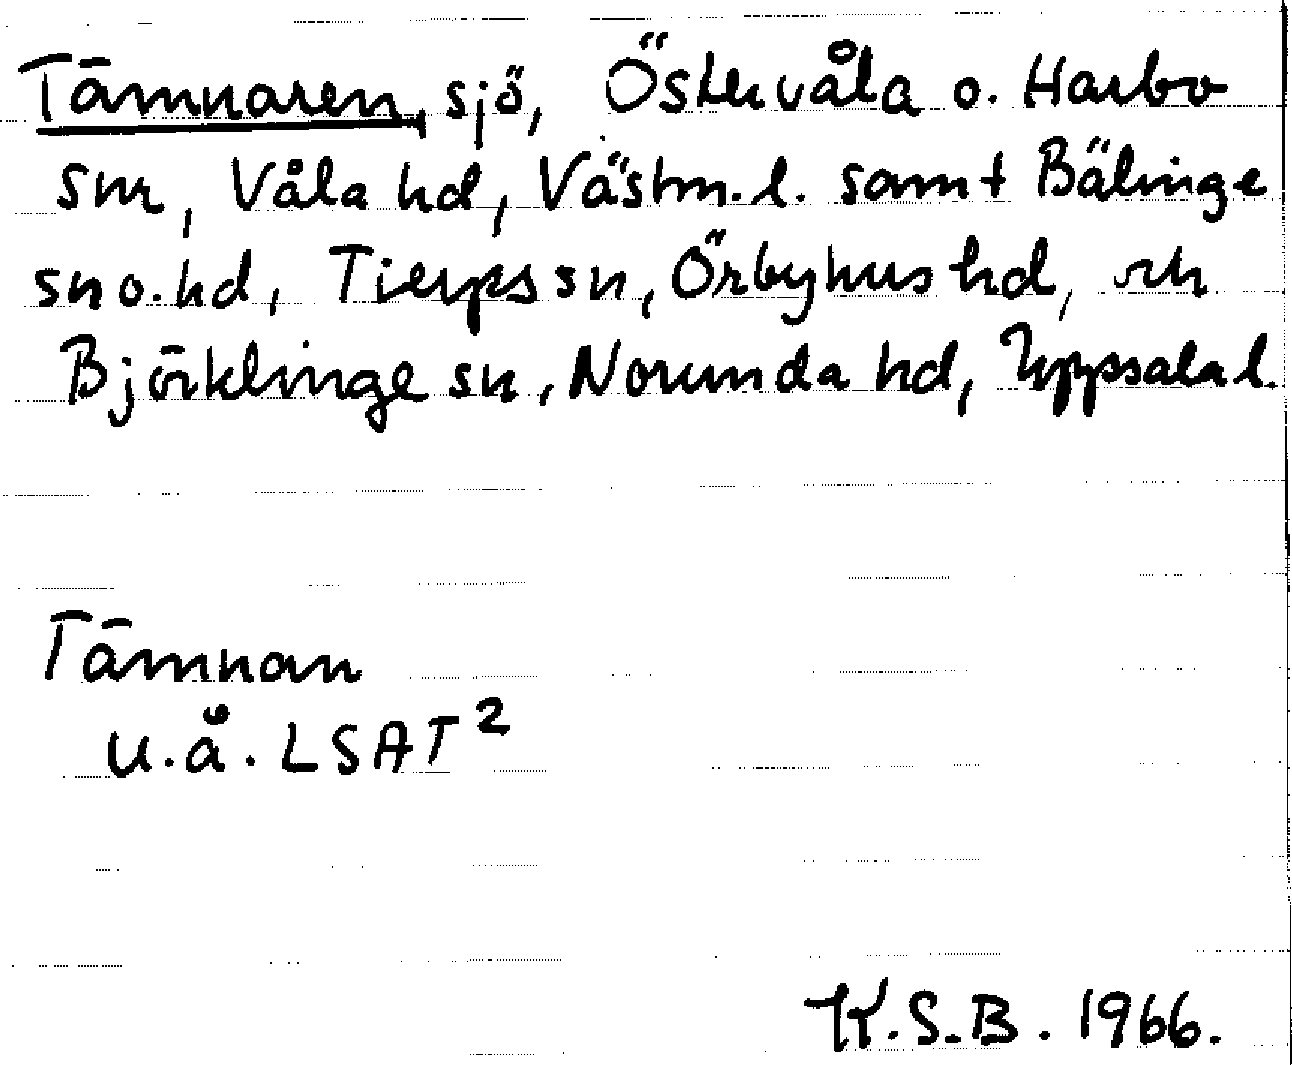 Tämnaren, sjö, Östervåla o. Harbo
snr, Våla hd, Västm. l. samt Bälinge
sn o. hd, Tierps sn, Örbyhus hd, och
Björklinge sn, Norunda hd, Uppsala l.
Tämnan
u.å. LSAT²
K.S.B. 1966.